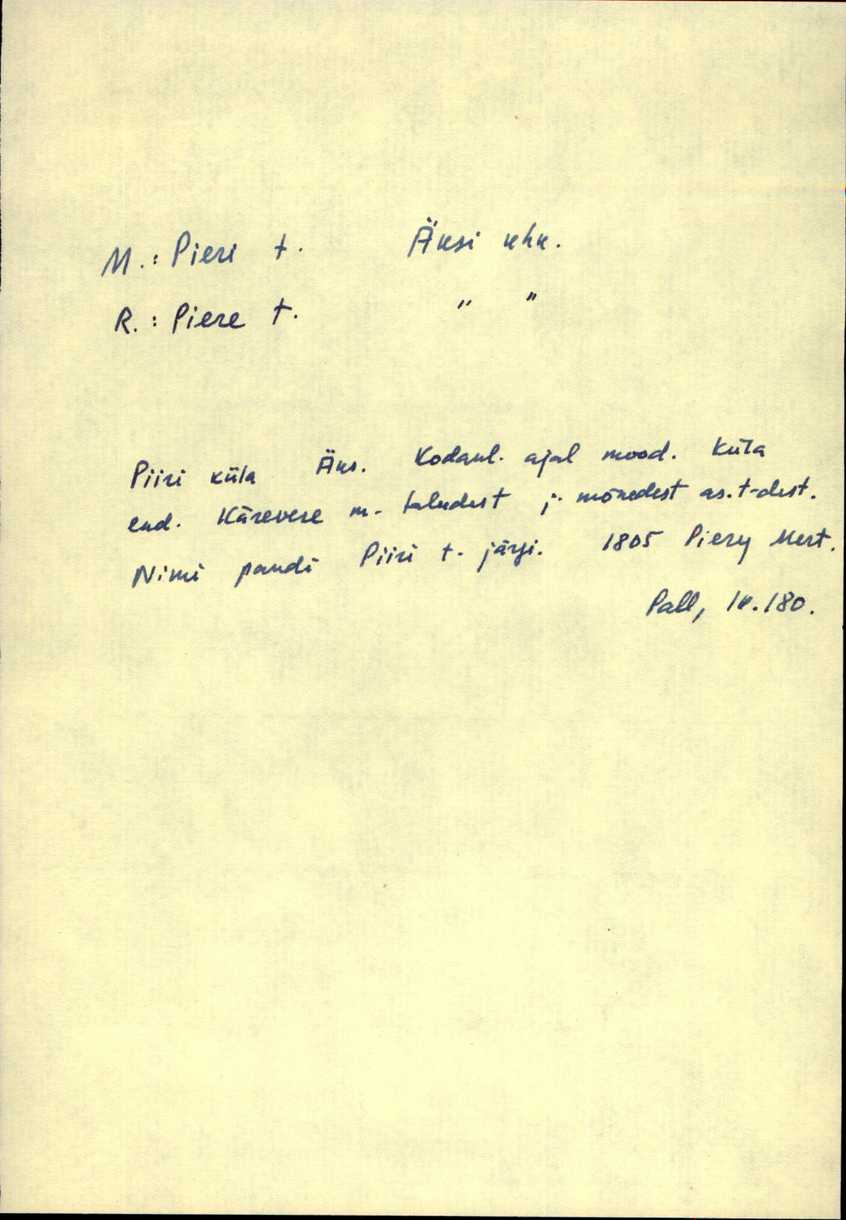 M.: Pieri t. Äksi khk.
R.: Piere t. " "
Piiri küla Äks. Kodanl. ajal mood. küla
end. Kärevere m. taludest j. mõnedest as.t-dest.
Nimi pandi Piiri t. järgi. 1805 Piery Mert.
Pall, lk. 180.